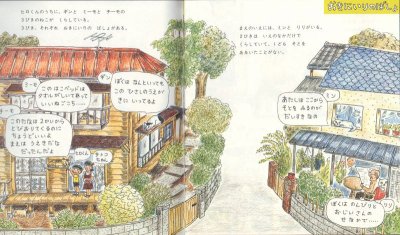 おきにいりのばしょ
ヒロくんのうちに、ギンと ミーモと チーモの
3びきのねこが くらしている。
3びき、それぞれ おきにいりの ばしょがある。
まえのいえには、ミンと リリがいる。
2ひきは いえのなかだけで
くらしていて、いちども そとを
あるいたことがない。
ギン
ぼくは なんといっても
この ひさしのうえが
きに いってるよ
ミーモ
この はこベッドは
かわいがしいてあって
いいねごこち……
チーモ
このたなは 2かいから
とびおりてくるのに
ちょうどいいよ
まえは うえきだな
だったんだよ
ヒロくん
ミン
あたしは ここから
そとを みるのが
だいすきなの
リリ
ぼくは のんびりと
おじいさんの
せなかで……